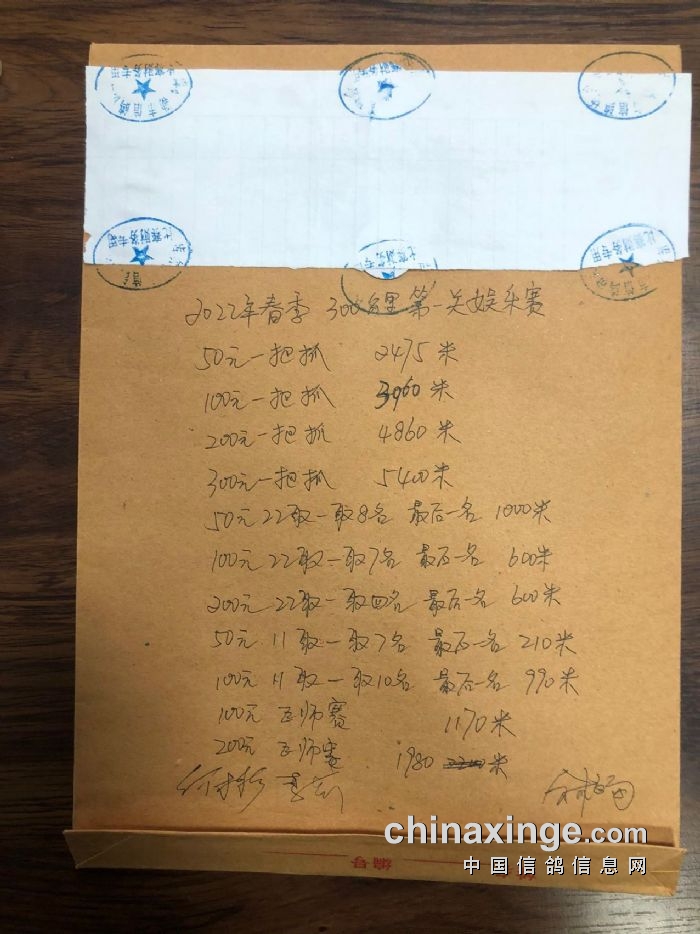 2022年春季 300公里第一关娱乐赛
50元一把抓 2475米
100元一把抓 3960米
200元一把抓 4860米
300元一把抓 5400米
50元22取一取8名 最后一名 1000米
100元22取一取7名 最后一名 600米
200元22取一取四名 最后一名 600米
50元 11取一取7名 最后一名 210米
100元 11取一取10名 最后一名 990米
100元 王师赛 1170米
200元 王师赛 1980 米
编号
chinaxinge.com
中国信鸽信息网